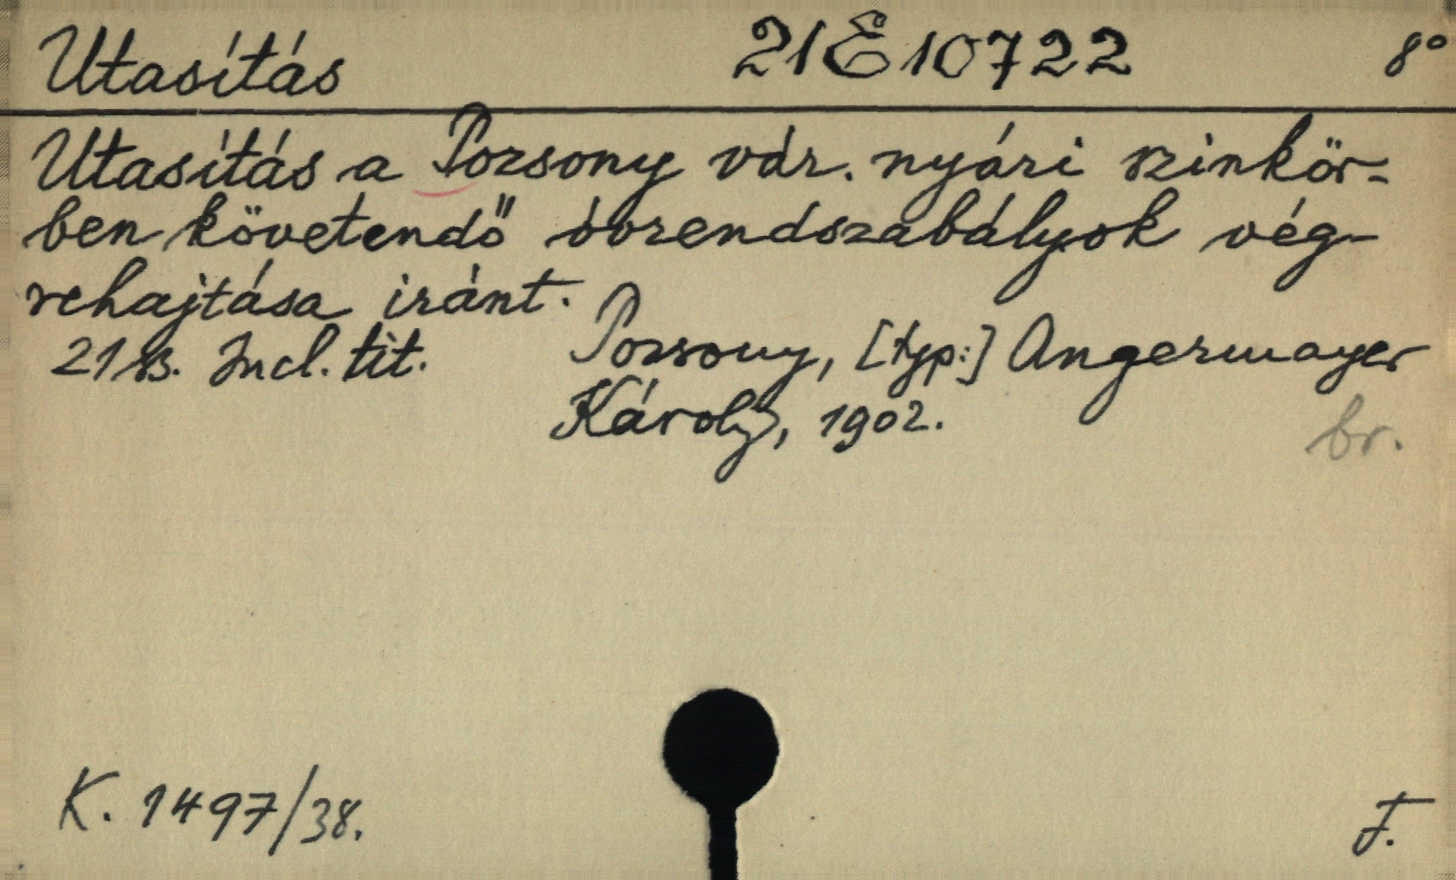 Utasítás 21E10722 8°
Utasítás a Pozsony vár. nyári szinkör-
ben követendő óvrendszabályok vég-
rehajtása iránt.
21 s. Incl. tit. Pozsony, [typ:] Angermayer
Károly, 1902.
br.
K. 1497/38. F.